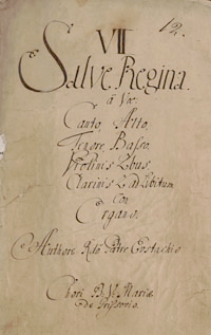 12.
VII
Salve Regina.
á Voc:
Canto, Alto,
Tenore, Basso,
Violinis 2bus,
Clarinis 2 ad libitum
Con
Organo.
Authore R:do Patre Eustachio
Chori B. V. Mariæ
de